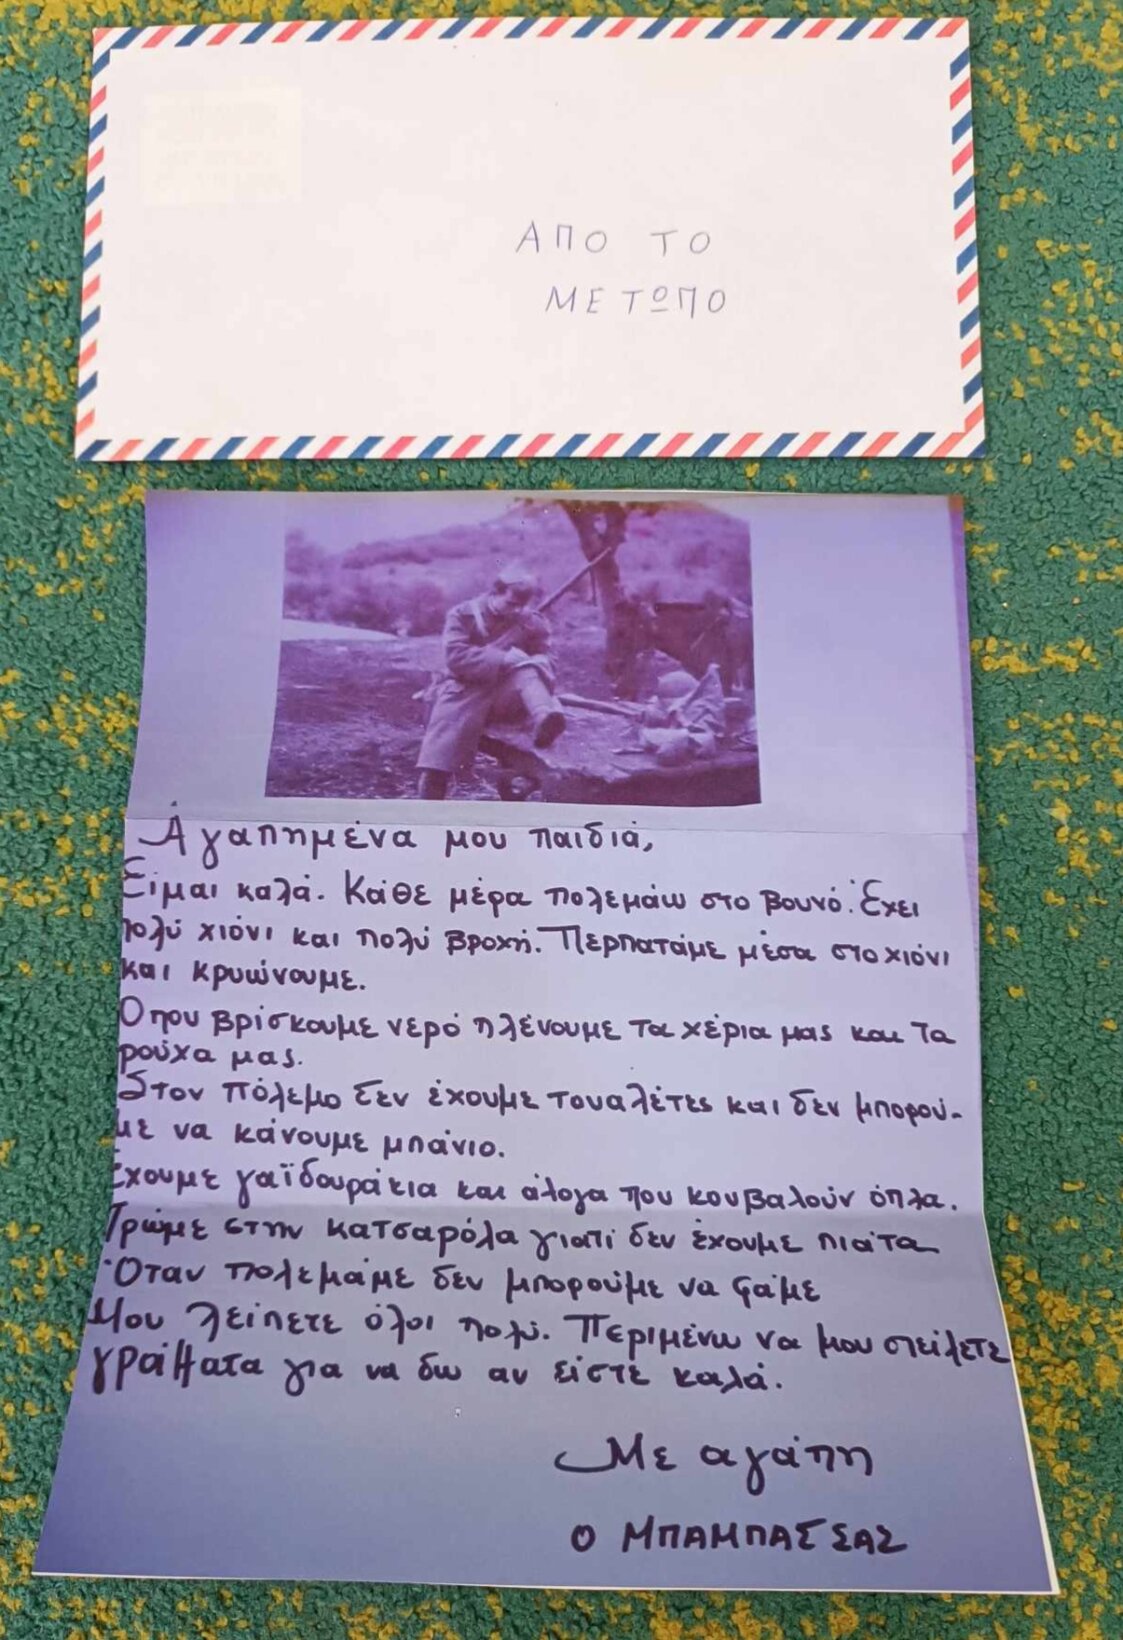 ΑΠΟ ΤΟ
ΜΕΤΩΠΟ
Αγαπημένα μου παιδιά,
Είμαι καλά. Κάθε μέρα πολεμάω στο βουνό. Έχει
πολύ χιόνι και πολύ βροχή. Περπατάμε μέσα στο χιόνι
και κρυώνουμε.
Όπου βρίσκουμε νερό πλένουμε τα χέρια μας και τα
ρούχα μας.
Στον πόλεμο δεν έχουμε τουαλέτες και δεν μπορού-
με να κάνουμε μπάνιο.
Έχουμε γαϊδουράκια και άλογα που κουβαλούν όπλα.
Τρώμε στην κατσαρόλα γιατί δεν έχουμε πιάτα
Όταν πολεμάμε δεν μπορούμε να φάμε
Μου λείπετε όλοι πολύ. Περιμένω να μου στείλετε
γράμματα για να δω αν είστε καλά.
Με αγάπη
Ο ΜΠΑΜΠΑΣ ΣΑΣ